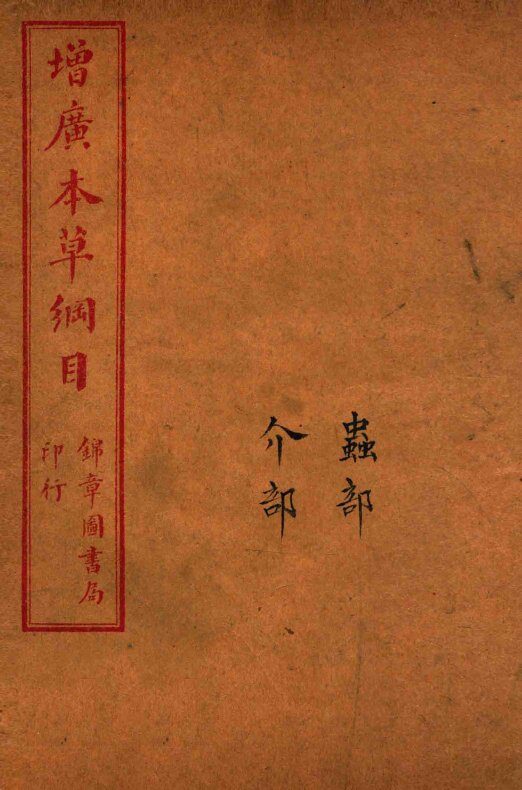 增廣本草綱目
錦章圖書局
印行
蟲部
介部